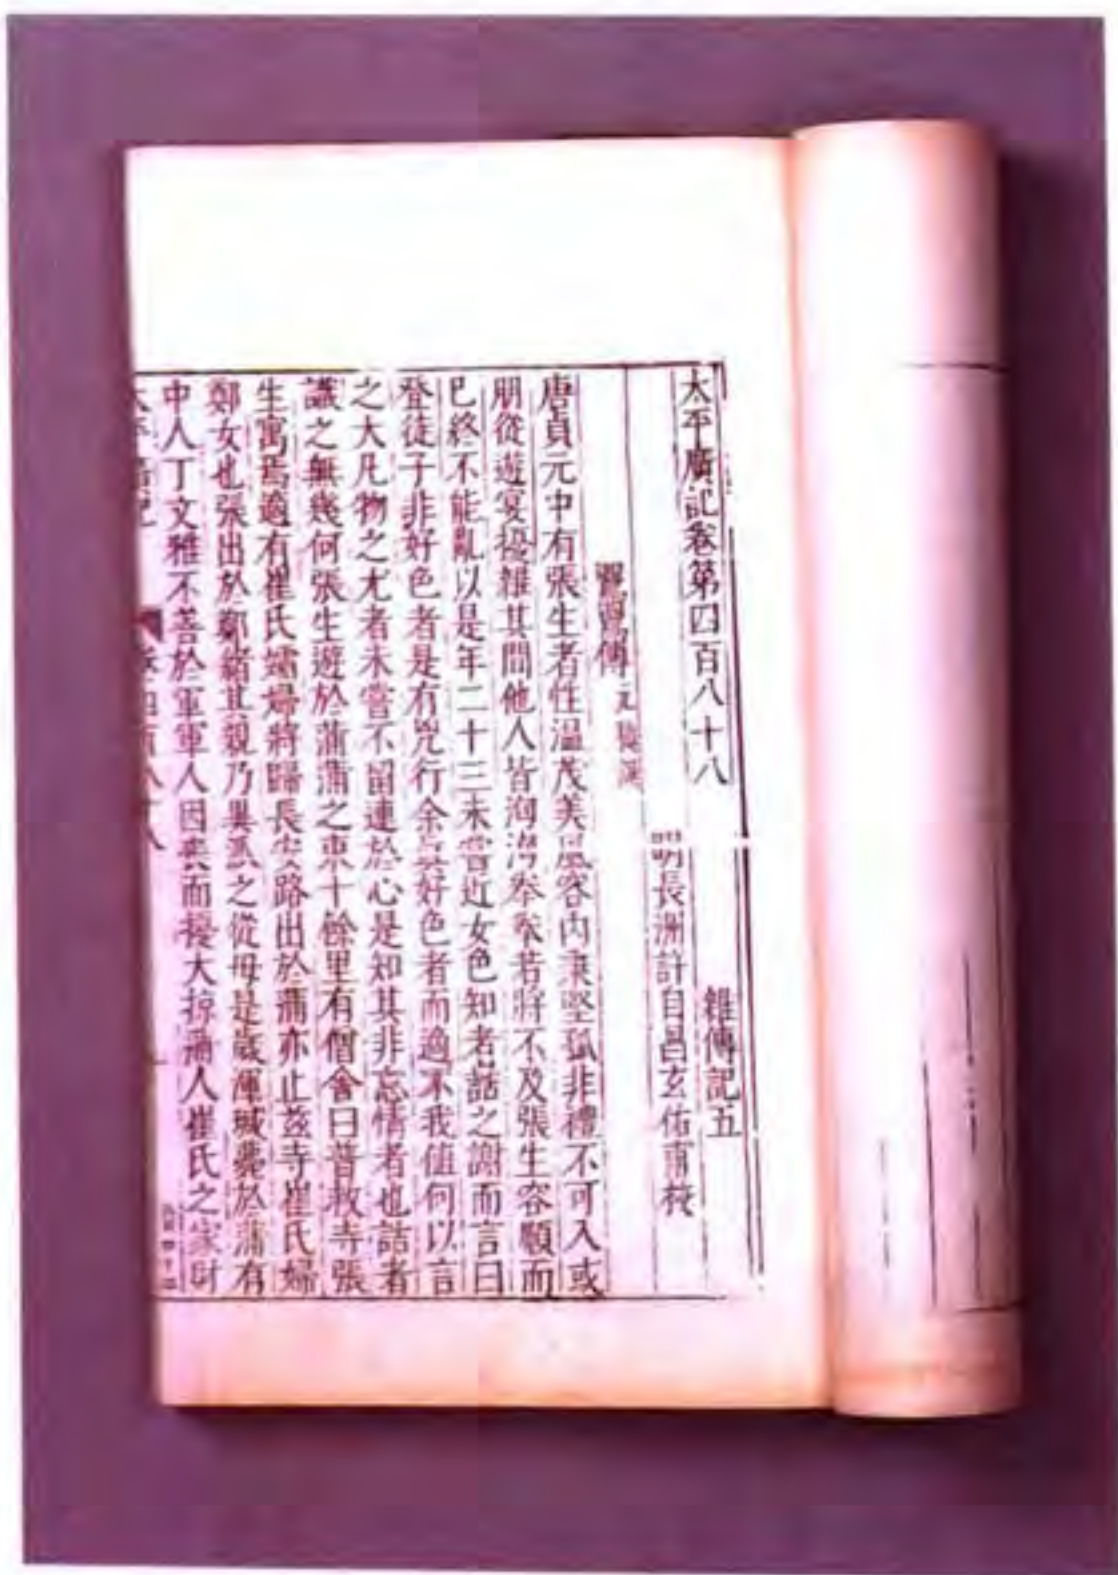 太平廣記卷第四百八十八
雜傳記五
明長洲許自昌玄佑甫校
鶯鶯傳 元稹撰
唐貞元中有張生者性溫茂美風容內秉堅孤非禮不可入或
朋從遊宴擾雜其間他人皆洶洶拳拳若將不及張生容順而
已終不能亂以是年二十三未嘗近女色知者詰之謝而言曰
登徒子非好色者是有兇行余真好色者而適不我值何以言
之大凡物之尤者未嘗不留連於心是知其非忘情者也詰者
識之無幾何張生遊於蒲蒲之東十餘里有僧舍曰普救寺張
生寓焉適有崔氏孀婦將歸長安路出於蒲亦止茲寺崔氏婦
鄭女也張出於鄭緒其親乃異派之從母是歲渾瑊薨於蒲有
中人丁文雅不善於軍軍人因喪而擾大掠蒲人崔氏之家財